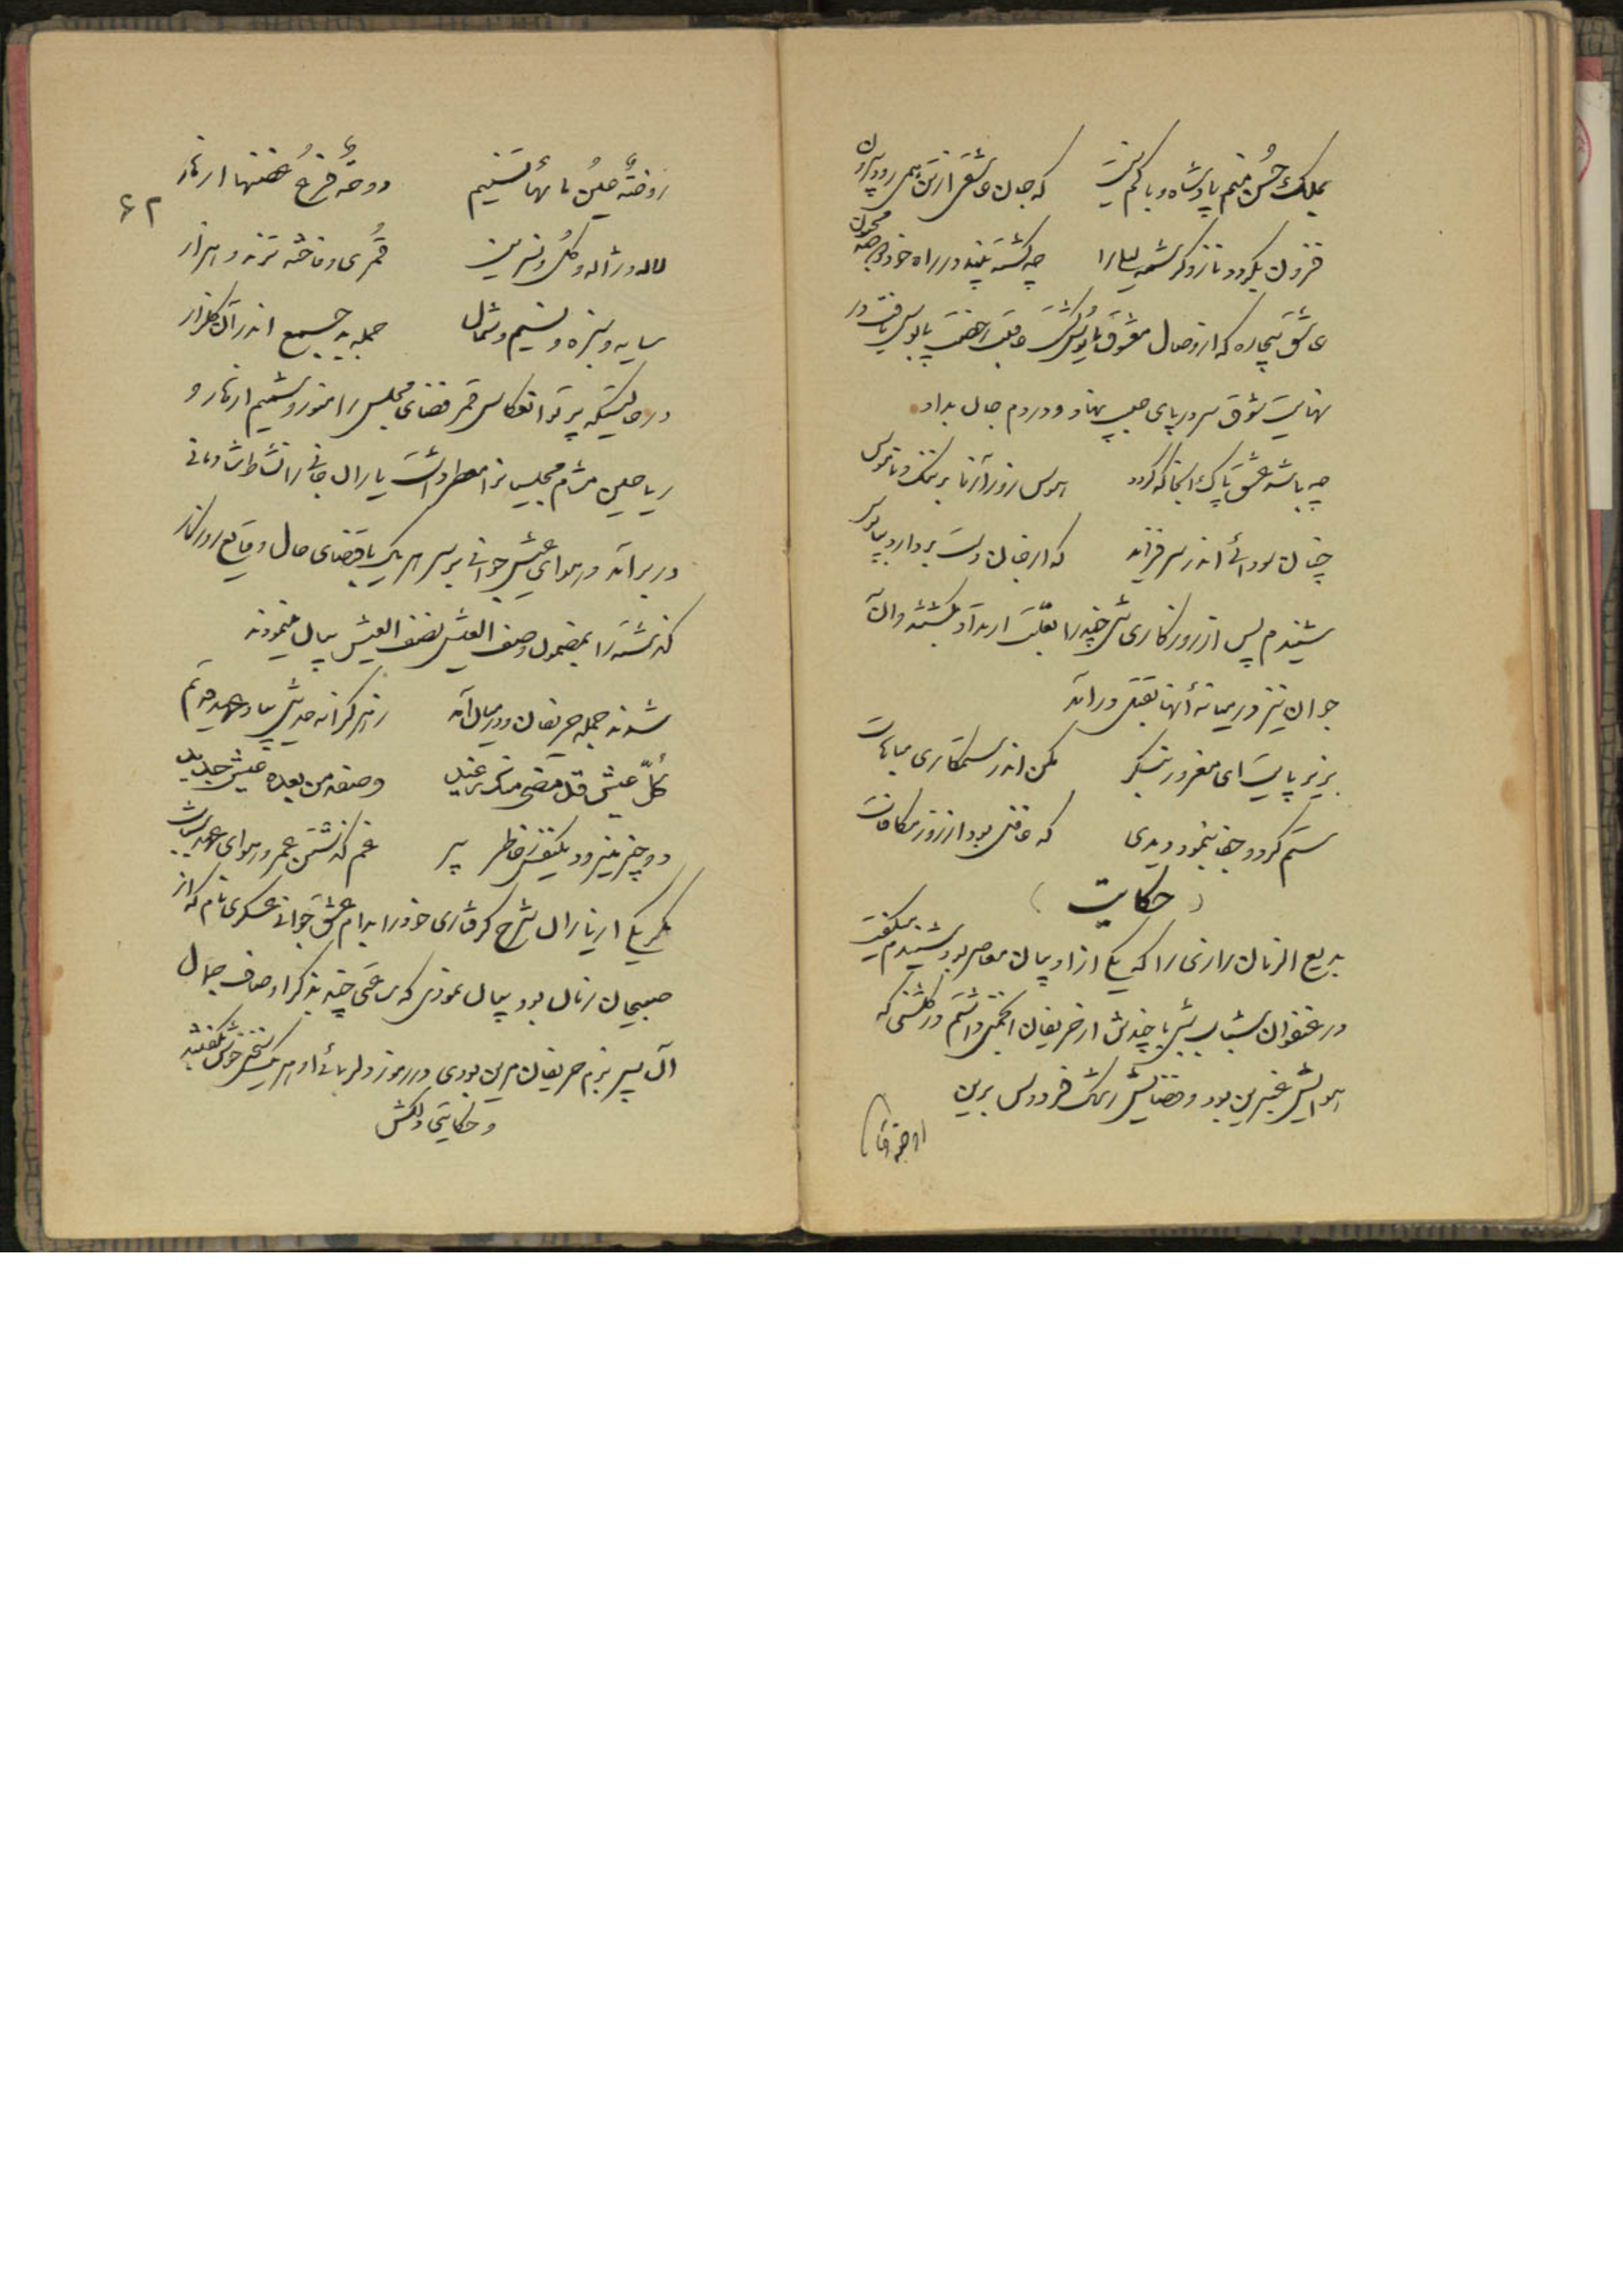 بملک حُسن منم پادشاه و باکم نیست که جان عاشقی از تن همی رود بیرون
فزون بگردد ناز و کرشمه لیلا را چه کشته بیند در راه خود مجنون
عاشق بیچاره که از وصال معشوق مأیوس گشت عاقبت رخصت پابوس یافت در
نهایت شوق سر در پای حبیب نهاد و در دم جان بداد
چه باشد عشق پاک اینجا که گردد هوس روزآزما بر ننگ و ناموس
چنان سودائی اندر سر فزاید که از جان دست بردارد بپابوس
شنیدم پس از روزگاری تنی چند را بعلت ارتداد بکشتند و آن
جوان نیز در میانه آنها بقتل درآمد
بزیر پایت ای مغرور بنگر مکن اندر ستمکاری مباهات
ستم کرد و جفا بنمود و دیدی که غافل بود از روز مکافات
(حکایت)
بدیع الزمان رازی را که یکی از ادیبان معاصر بود شنیدم میگفت
در عنفوان شباب شبی با چند تن از حریفان انجمنی داشتم در گلشنی که
هوایش عنبرین بود و فضایش رشک فردوس برین
روضة ماء
۶۲
روضةٌ عینُ مائها تسنیم دوحةٌ فرعُ غصنها ازهار
لاله و ژاله و گل و نسرین قُمری و فاخته تزرو هزار
سایه و سبزه و نسیم و شمال جمله بد جمع اندر آن گلزار
در حالتیکه پرتو انعکاس قمر فضای مجلس را منور و شمیم ازهار و
ریاحین مشام مجلسیانرا معطر داشت یاران جانی را نشاط شادمانی
در بر آمد و هوای عیش جوانی بر سر هر یک باقتضای حال وقایع روزگار
گذشته را بمضمون وصف العیش نصف العیش بیان مینمودند
شدند جمله حریفان و در میان آمد ز هر کرانه حدیثی بیاد عهد قدیم
کلّ عیش قد مضی منک رغید وصفه من بعده عیش جدید
دو چیز میرود بکنفس ز خاطر پیر غم گذشتن عمر و هوای عهد شباب
مگر یکی از یاران شرح گرفتاری خود را بدام عشق جوانی عسکری نام که از
صبیحان زمان بود بیان نمود که ساعتی چند بذکر اوصاف جمال
آن پسر بزم حریفان مزین بودی و در رموز دلربائی او هر یک سخنی خوش گفتند
و حکایتی دلکش